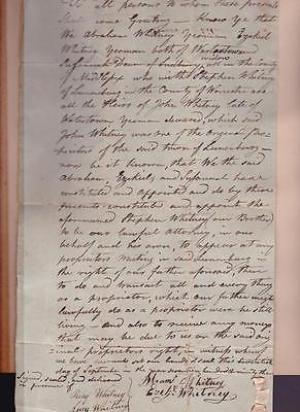 To all persons to whom these presents
shall come Greeting - Know Ye that
We Abraham Whitney Yeoman Ezekiel
Whitney Yeoman both of Watertown
Susannah of Lunenburg widow all in the County
of who with Stephen Whitney
of Lunenburg in the County of Worcester are
all the Heirs of John Whitney late of
Watertown Yeoman deceased, which said
John Whitney was one of the original Pro-
prietors of the said town of Lunenburg -
now be it Known, that We the said
Abraham, Ezekiel, and Susannah have
constituted and appointed and do by these
presents constitute and appoint the
aforenamed Stephen Whitney our Brother
to be our lawful Attorney, in our
behalf and his own, to appear at any
proprietors Meeting in said Lunenburg in
the right of our father aforesaid, there
to do and transact all and every thing
as a proprietor, which our father might
lawfully do as a proprietor were he still
living - and also to receive any moneys
that may be due to us on the said orig
inal proprietors right, in witness whereof
we have hereunto set our hands & seals this
day of September in the year
Signed, sealed and delivered
in presence of
Abram Whitney
Whitney
Ezek Whitney
Whitney